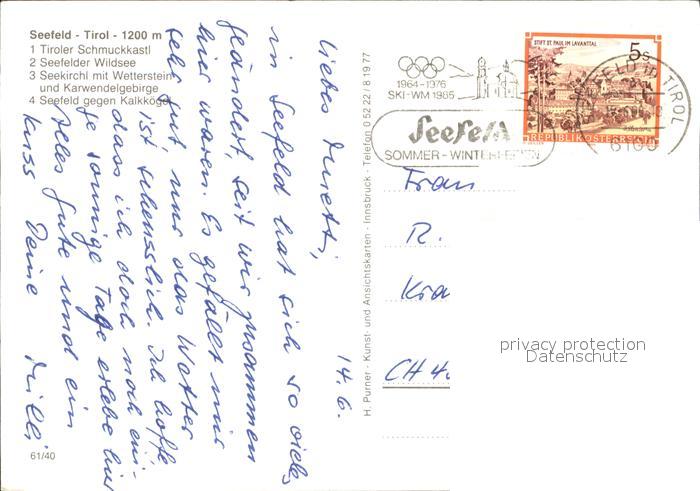 Seefeld - Tirol - 1200 m
1 Tiroler Schmuckkastl
2 Seefelder Wildsee
3 Seekirchl mit Wetterstein-
und Karwendelgebirge
4 Seefeld gegen Kalkkögel
61/40
H. Purner - Kunst- und Ansichtskarten - Innsbruck - Telefon 0 52 22 / 8 19 77
14. 6.
Liebes
in Seefeld hat sich so vieles
geändert, seit wir zusammen
hier waren. Es gefällt mir
sehr gut nur das Wetter
ist scheusslich. Ich hoffe
dass ich doch noch eini-
ge sonnige Tage erlebe hier
Alles gute und ein
Kuss Deine
1964-1976
SKI-WM 1985
Seefeld
SOMMER - WINTERFERIEN
STIFT ST. PAUL IM LAVANTTAL
5 S
REPUBLIK ÖSTERREICH
SEEFELD in TIROL
6100
Frau
R.
CH 4
privacy protection
Datenschutz